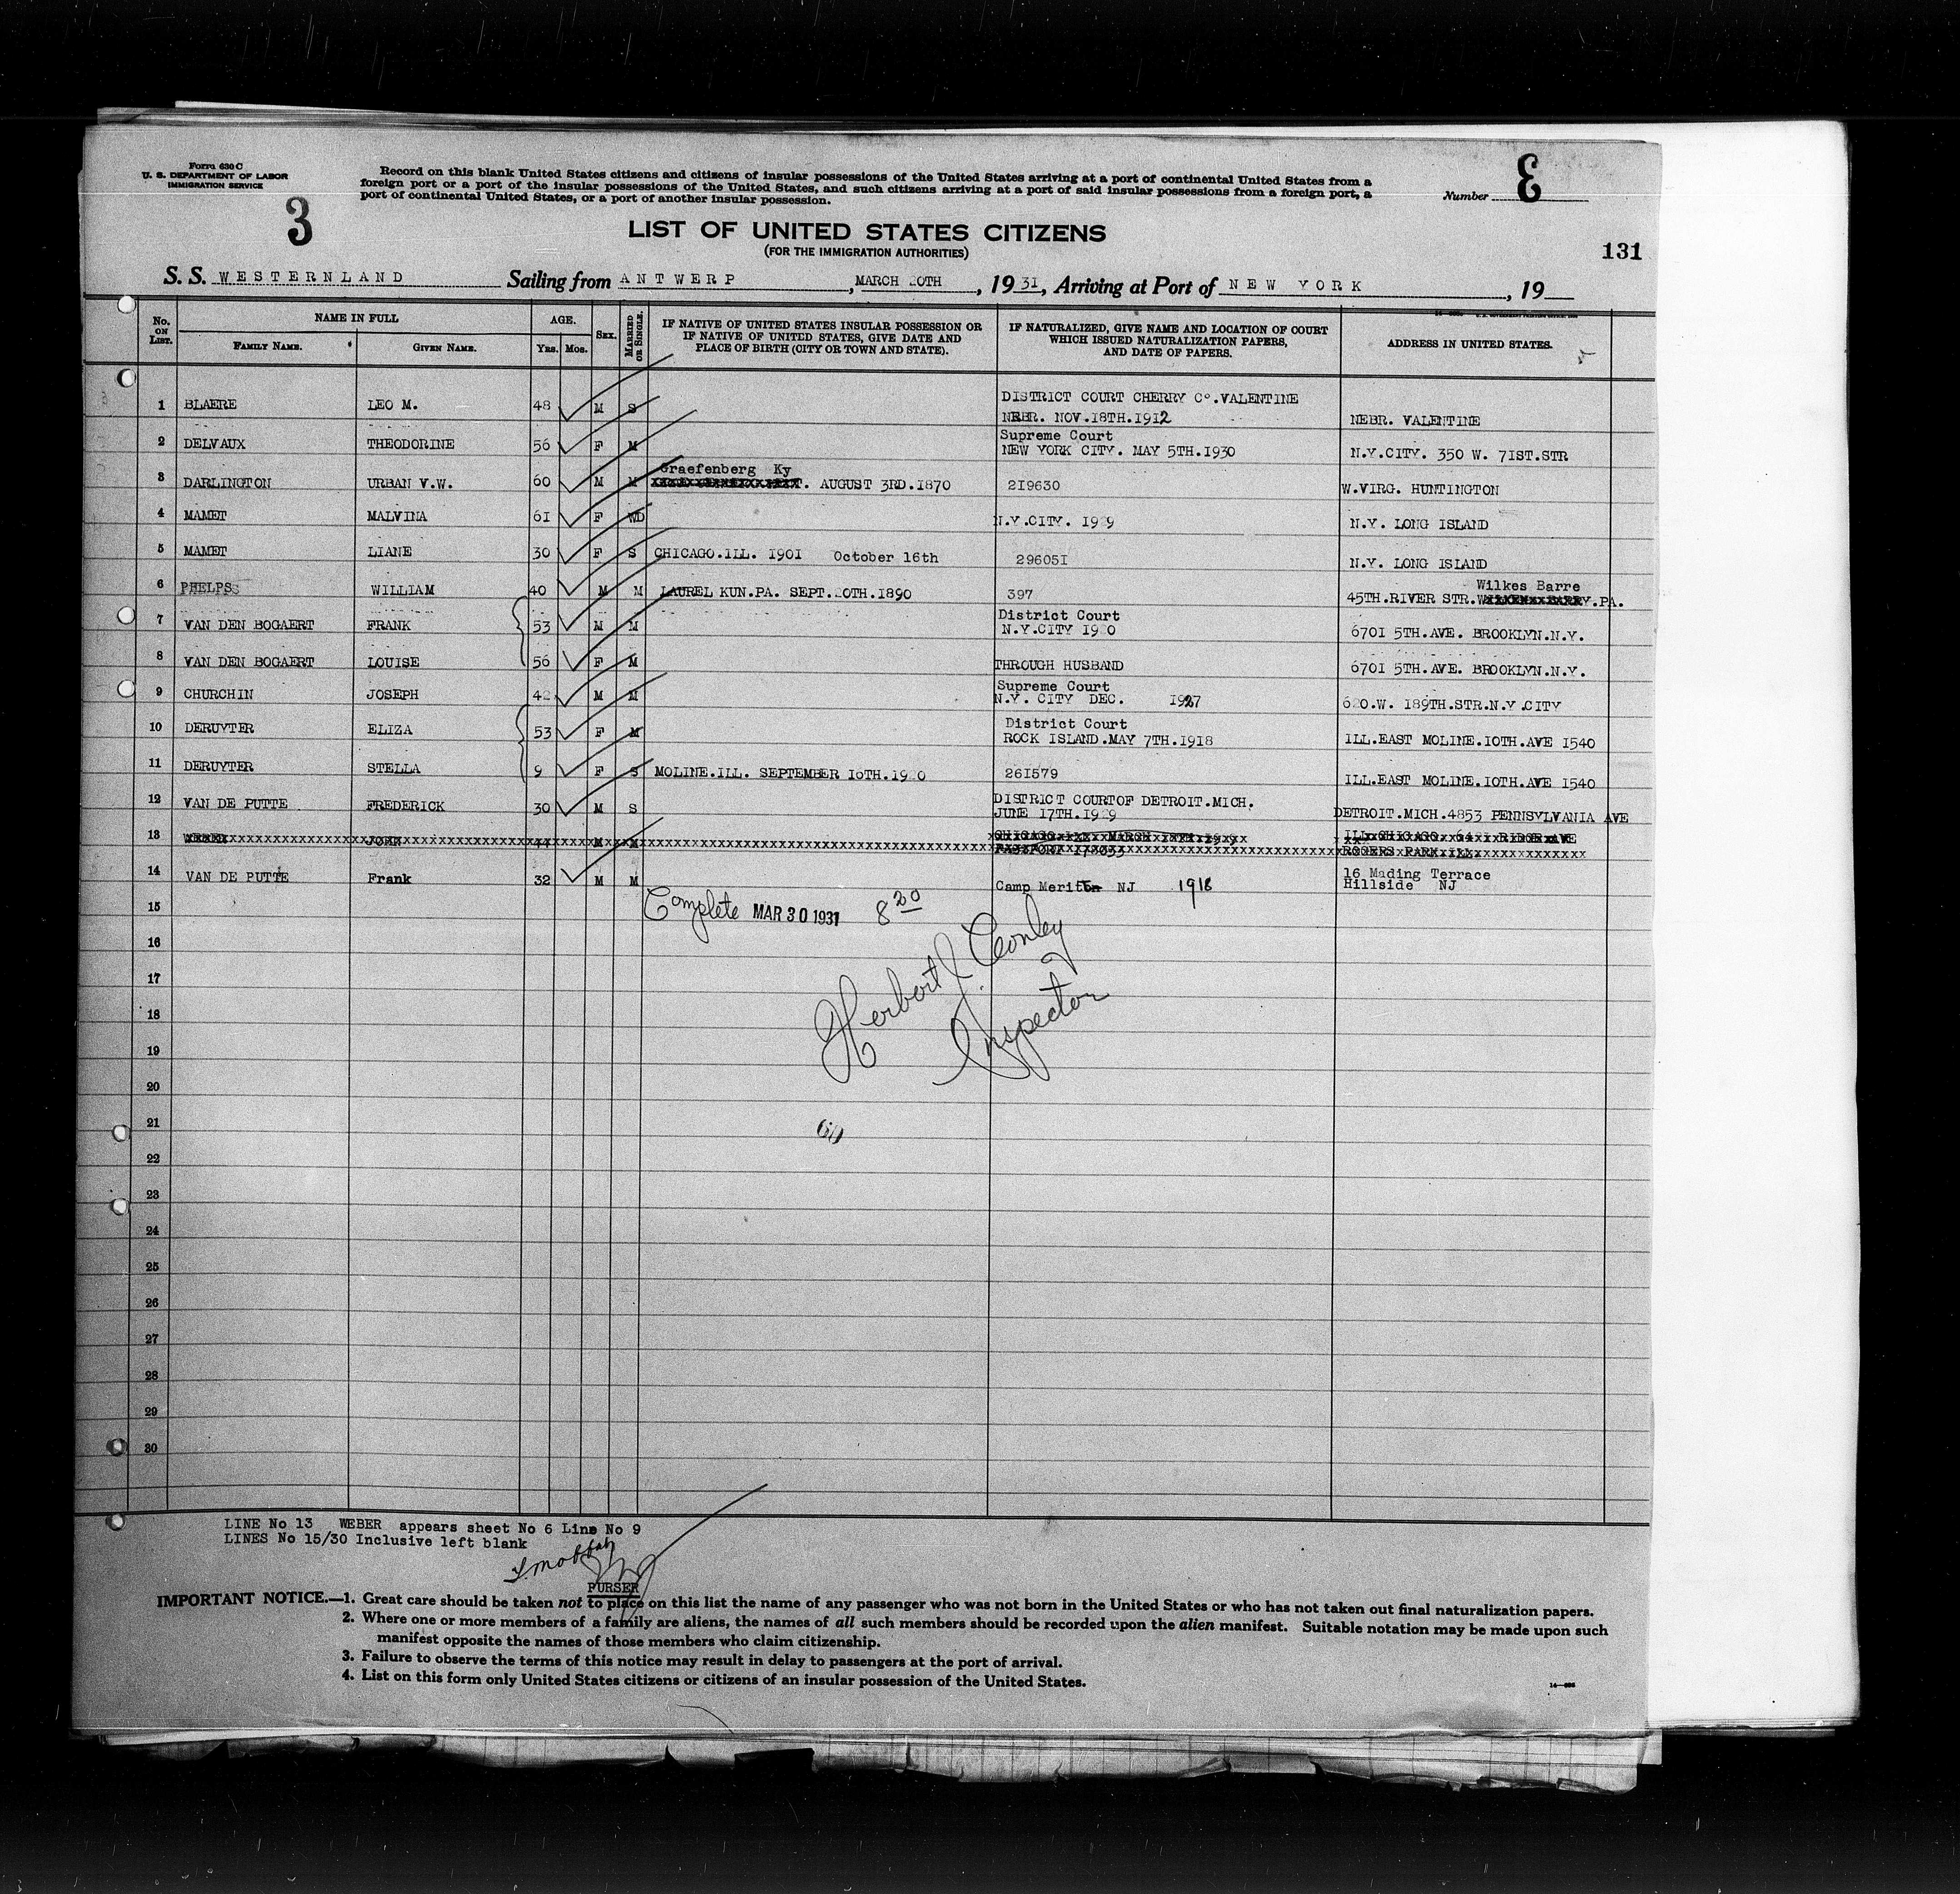 Form 630 C
U. S. DEPARTMENT OF LABOR
IMMIGRATION SERVICE
Record on this blank United States citizens and citizens of insular possessions of the United States arriving at a port of continental United States from a
foreign port or a port of the insular possessions of the United States, and such citizens arriving at a port of said insular possessions from a foreign port, a
port of continental United States, or a port of another insular possession.
Number 3
3
LIST OF UNITED STATES CITIZENS
(FOR THE IMMIGRATION AUTHORITIES)
131
S. S. WESTERNLAND Sailing from ANTWERP, MARCH 20TH, 1931, Arriving at Port of NEW YORK, 19
No. ON LIST. NAME IN FULL FAMILY NAME. GIVEN NAME. AGE. YRS. MOS. SEX. MARRIED OR SINGLE. IF NATIVE OF UNITED STATES INSULAR POSSESSION OR IF NATIVE OF UNITED STATES, GIVE DATE AND PLACE OF BIRTH (CITY OR TOWN AND STATE). IF NATURALIZED, GIVE NAME AND LOCATION OF COURT WHICH ISSUED NATURALIZATION PAPERS, AND DATE OF PAPERS. ADDRESS IN UNITED STATES.
1 BLAERE LEO M. 48 M S DISTRICT COURT CHERRY Co.VALENTINE NEBR. NOV.18TH.1912 NEBR. VALENTINE
2 DELVAUX THEODORINE 56 F M Supreme Court NEW YORK CITY. MAY 5TH.1930 N.Y.CITY. 350 W. 71ST.STR
3 DARLINGTON URBAN V.W. 60 M M Graefenberg Ky AUGUST 3RD.1870 219630 W.VIRG. HUNTINGTON
4 MAMET MALVINA 61 F WD N.Y.CITY. 1929 N.Y. LONG ISLAND
5 MAMET LIANE 30 F S CHICAGO.ILL. 1901 October 16th 296051 N.Y. LONG ISLAND
6 PHELPS WILLIAM 40 M M LAUREL RUN.PA. SEPT.20TH.1890 397 45TH.RIVER STR. Wilkes Barre .PA.
7 VAN DEN BOGAERT FRANK 53 M M District Court N.Y.CITY 1920 6701 5TH.AVE. BROOKLYN.N.Y.
8 VAN DEN BOGAERT LOUISE 56 F M THROUGH HUSBAND 6701 5TH.AVE. BROOKLYN.N.Y.
9 CHURCHIN JOSEPH 42 M M Supreme Court N.Y. CITY DEC. 1927 620.W. 189TH.STR.N.Y.CITY
10 DERUYTER ELIZA 53 F M District Court ROCK ISLAND.MAY 7TH.1918 ILL.EAST MOLINE.10TH.AVE 1540
11 DERUYTER STELLA 9 F S MOLINE.ILL. SEPTEMBER 16TH.1920 261579 ILL.EAST MOLINE.10TH.AVE 1540
12 VAN DE PUTTE FREDERICK 30 M S DISTRICT COURTOF DETROIT.MICH. JUNE 17TH.1929 DETROIT.MICH.4853 PENNSYLVANIA AVE
13 WEBER JOHN 44 M M PASSPORT ROGERS PARK ILL.
14 VAN DE PUTTE Frank 32 M M Camp Merit NJ 1918 16 Mading Terrace Hillside NJ
15 Complete MAR 30 1931 8 20
Herbert J. Conley
Inspector
16
17
18
19
20
21 60
22
23
24
25
26
27
28
29
30
LINE No 13 WEBER appears sheet No 6 Line No 9
LINES No 15/30 Inclusive left blank
PURSER
IMPORTANT NOTICE.—1. Great care should be taken not to place on this list the name of any passenger who was not born in the United States or who has not taken out final naturalization papers.
2. Where one or more members of a family are aliens, the names of all such members should be recorded upon the alien manifest. Suitable notation may be made upon such
manifest opposite the names of those members who claim citizenship.
3. Failure to observe the terms of this notice may result in delay to passengers at the port of arrival.
4. List on this form only United States citizens or citizens of an insular possession of the United States.